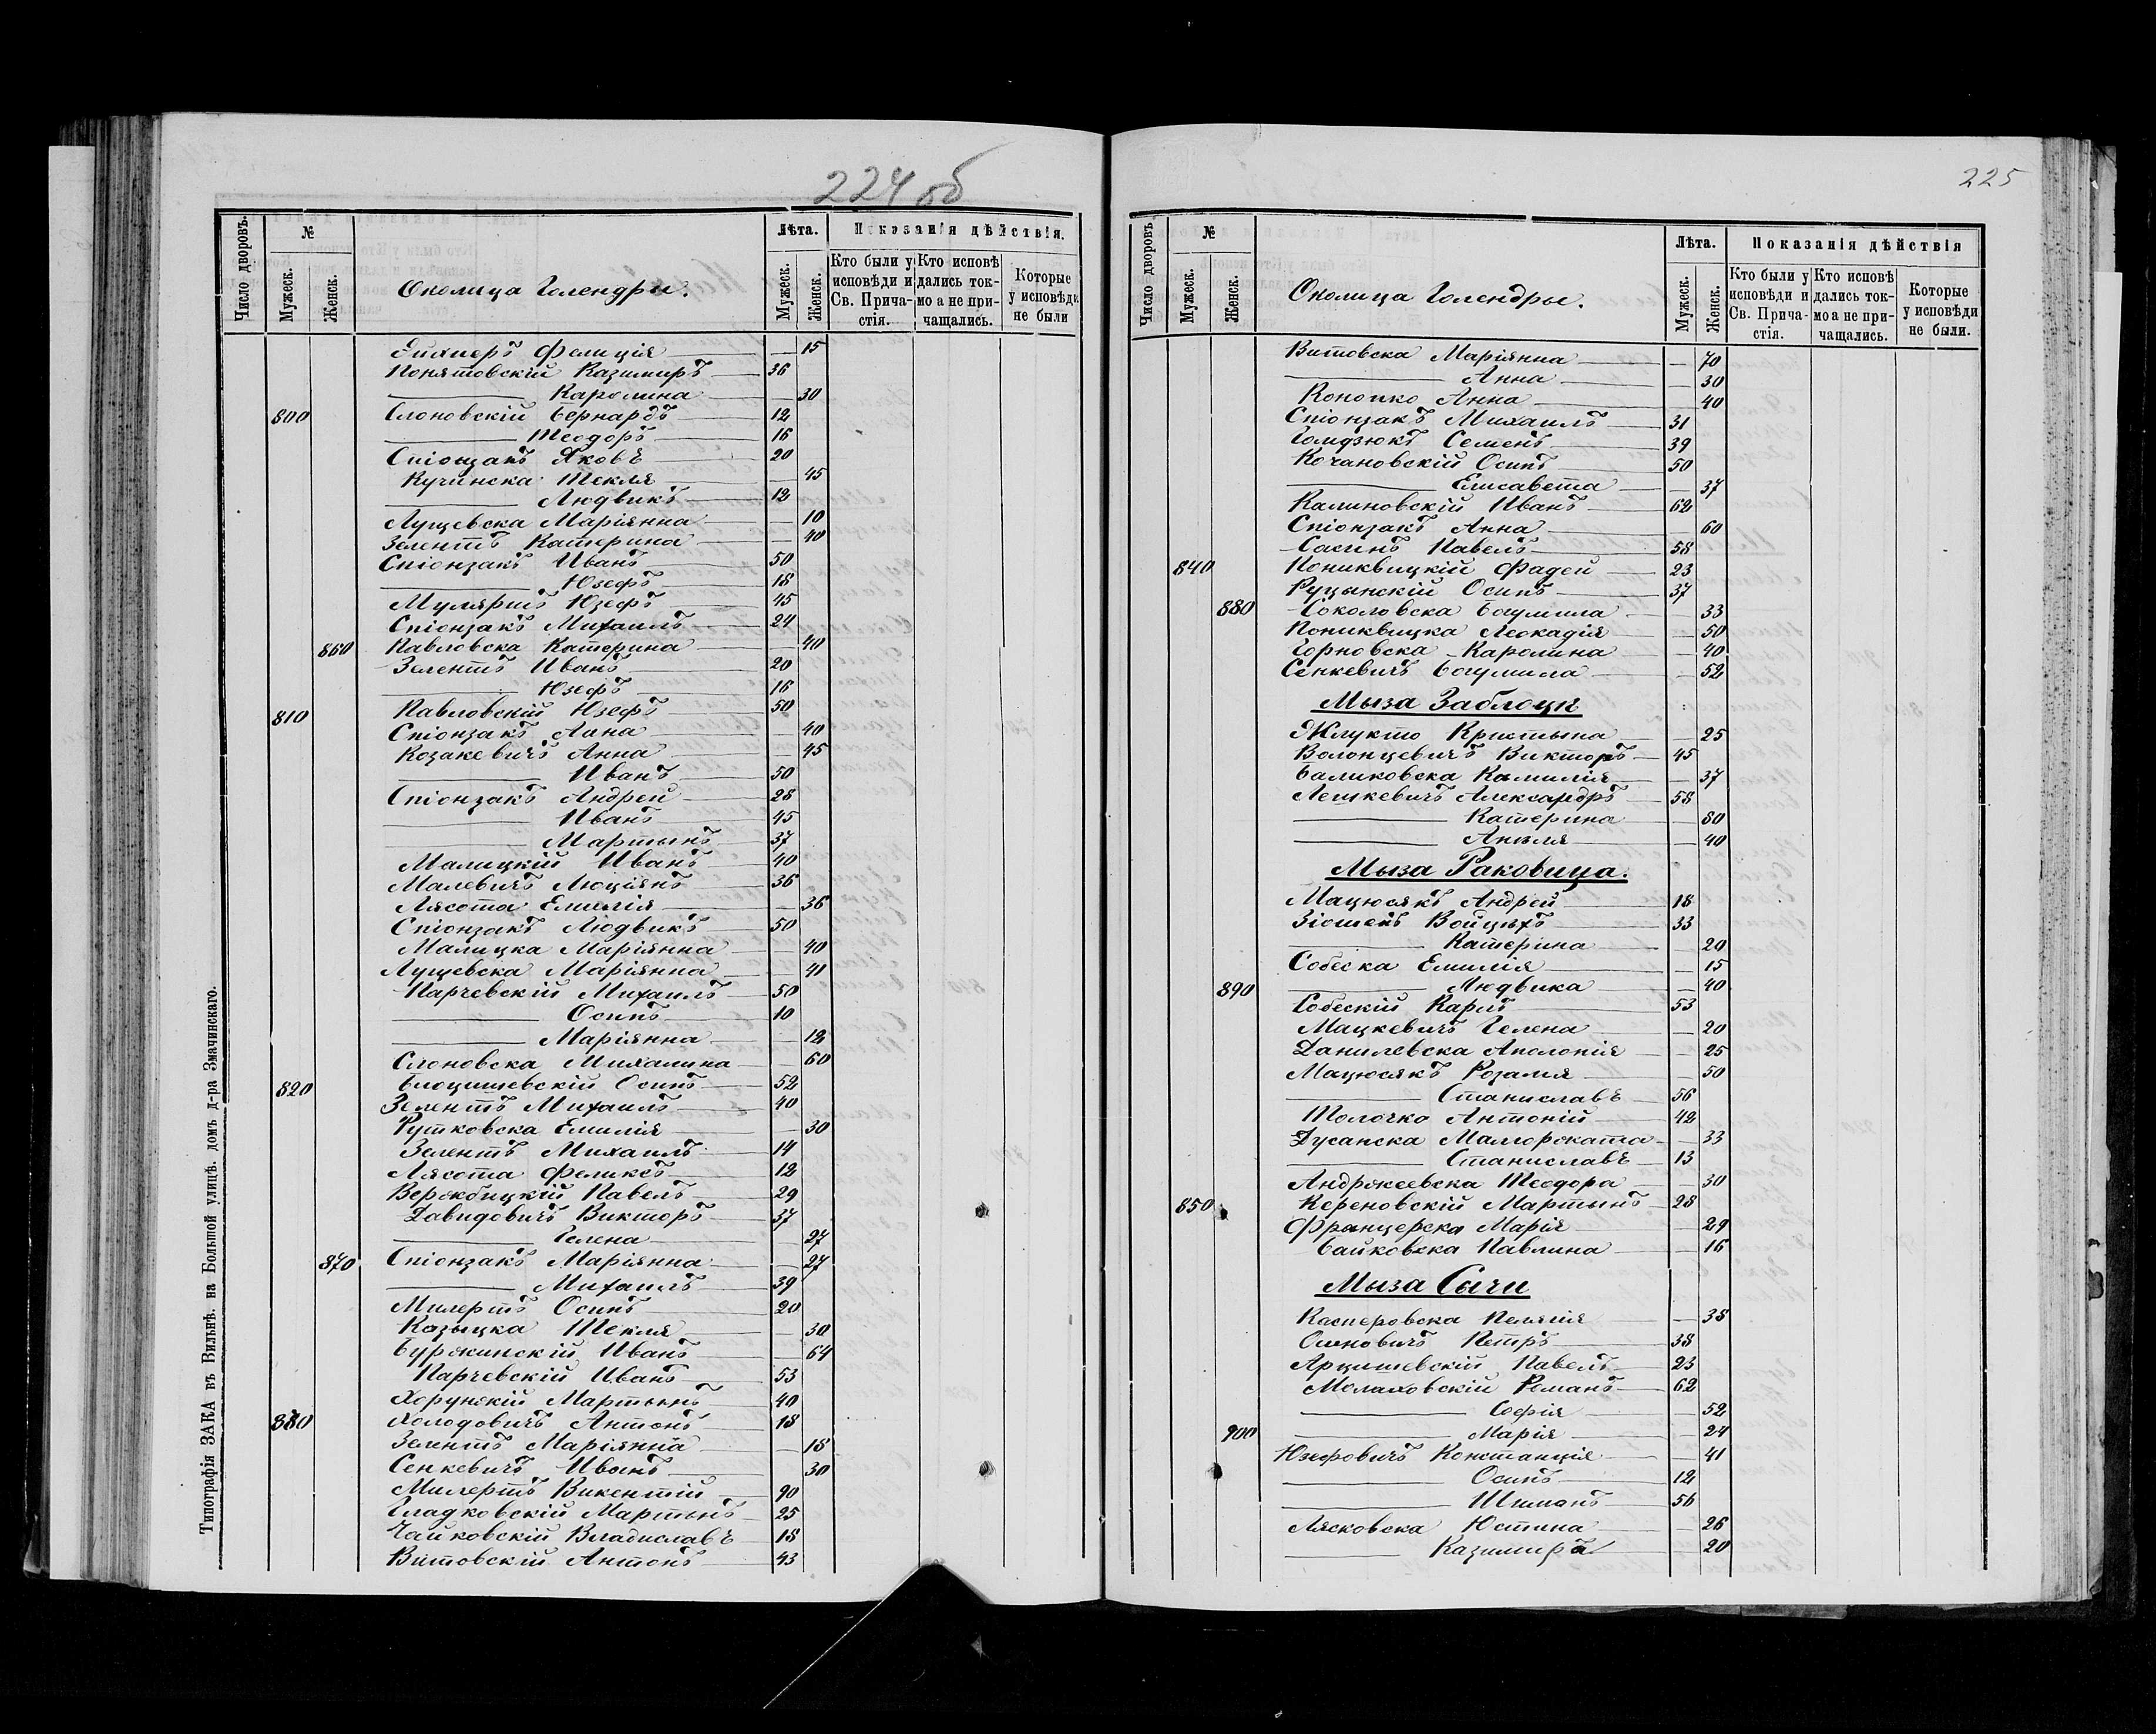 224 об
Число дворовъ.
№
Мужеск.
Женск.
Околица Голендры.
Лѣта.
Мужеск.
Женск.
Показанія дѣйствія.
Кто были у исповѣди и Св. Причастія.
Кто исповѣдались токмо а не причащались.
Которые у исповѣди не были
Типографія ЗАКА въ Вильнѣ. на Большой улицѣ. домъ д-ра Змачинскаго.
Фелиція — 15
Понятовскій Казимиръ — 36
— Каролина — 30
800 Слоновскій Бернардъ — 12
— Теодоръ — 16
Спіонзакъ Яковъ — 20
Кучинска Текля — 45
— Людвикъ — 12
Лущевска Маріянна — 10
Зелентъ Катерина — 40
Спіонзакъ Иванъ — 50
— Юзефъ — 18
Мулярть Юзефъ — 45
Спіонзакъ Михаилъ — 24
860 Павловска Катерина — 40
Зелентъ Иванъ — 20
— Юзефъ — 16
810 Павловскій Юзефъ — 50
Спіонзакъ Анна — 40
Козакевичъ Анна — 45
— Иванъ — 50
Спіонзакъ Андрей — 28
— Иванъ — 45
— Мартынъ — 37
Малицкій Иванъ — 40
Малевичъ Люціянъ — 36
Лясота Емилія — 36
Спіонзакъ Людвикъ — 50
Малицка Маріянна — 40
Лущевска Маріянна — 41
Парчевскій Михаилъ — 50
— Осипъ — 10
— Маріянна — 12
Слоновска Михалина — 60
820 Блоцишевскій Осипъ — 52
Зелентъ Михаилъ — 40
Рутковска Емилія — 30
Зелентъ Михаилъ — 14
Лясота Феликсъ — 12
Вержбицкій Павелъ — 29
Давидовичъ Викторъ — 37
— Гелена — 27
870 Спіонзакъ Маріянна — 27
— Михаилъ — 39
Милертъ Осипъ — 20
Козыцка Текля — 30
Буржинскій Иванъ — 64
Парчевскій Иванъ — 53
Хорунскій Мартынъ — 40
830 Холодовичъ Антонъ — 18
Зелентъ Маріянна — 18
Сенкевичъ Иванъ — 30
Милертъ Викентій — 90
Гладковскій Мартынъ — 25
Чайковскій Владиславъ — 18
Витовскій Антонъ — 43
225
Число дворовъ.
№
Мужеск.
Женск.
Околица Голендры.
Лѣта.
Мужеск.
Женск.
Показанія дѣйствія
Кто были у исповѣди и Св. Причастія.
Кто исповѣдались токмо а не причащались.
Которые у исповѣди не были.
Витовска Маріянна — 70
— Анна — 30
Конопко Анна — 40
Спіонзакъ Михаилъ — 31
Голидзюкъ Семенъ — 39
Кочановскій Осипъ — 50
— Елисавета — 37
Калиновскій Иванъ — 62
Спіонзакъ Анна — 60
Сасинъ Павелъ — 58
840 Пониквицкій Фадей — 23
Руцынскій Осипъ — 37
880 Соколовска Богумила — 33
Пониквицка Леокадія — 50
Горновска Каролина — 40
Сенкевичъ Богумила — 52
Мыза Заблоцк
Жлукто Криштына — 25
Волонцевичъ Викторъ — 45
Баликовска Камилія — 37
Лешкевичъ Александръ — 58
— Катерина — 80
— Анеля — 40
Мыза Раковица.
Мацюсякъ Андрей — 18
Зіомекъ Войцѣхъ — 33
— Катерина — 20
Собеска Емилія — 15
890 — Людвика — 40
Собескій Карлъ — 53
Мацкевичъ Гелена — 20
Данилевска Аполонія — 25
Мацюсякъ Розалія — 50
— Станиславъ — 56
Толочко Антоній — 42
Дусанска Малгоржата — 33
— Станиславъ — 13
Андржеевска Теодора — 30
850 Кереновскій Мартынъ — 28
Марія — 29
Байковска Павлина — 16
Мыза Сычи
Касперовска Пелагія — 38
Петръ — 38
Арцишевскій Павелъ — 23
Малаховскій Романъ — 62
— Софія — 52
900 — Марія — 24
Юзефовичъ Констанція — 41
— Осипъ — 12
— Шиманъ — 56
Лясковска Юстина — 26
— Казимира — 20